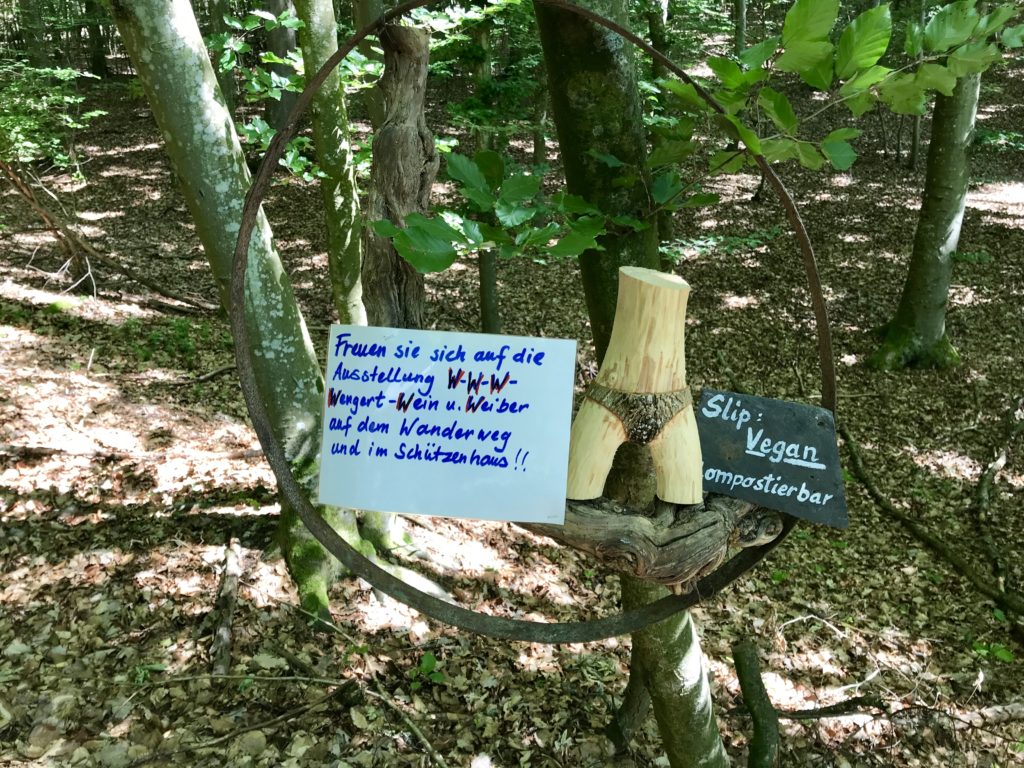 Freuen sie sich auf die
Ausstellung W-W-W-
Wengert-Wein u. Weiber
auf dem Wanderweg
und im Schützenhaus!!
Slip:
Vegan
ompostierbar